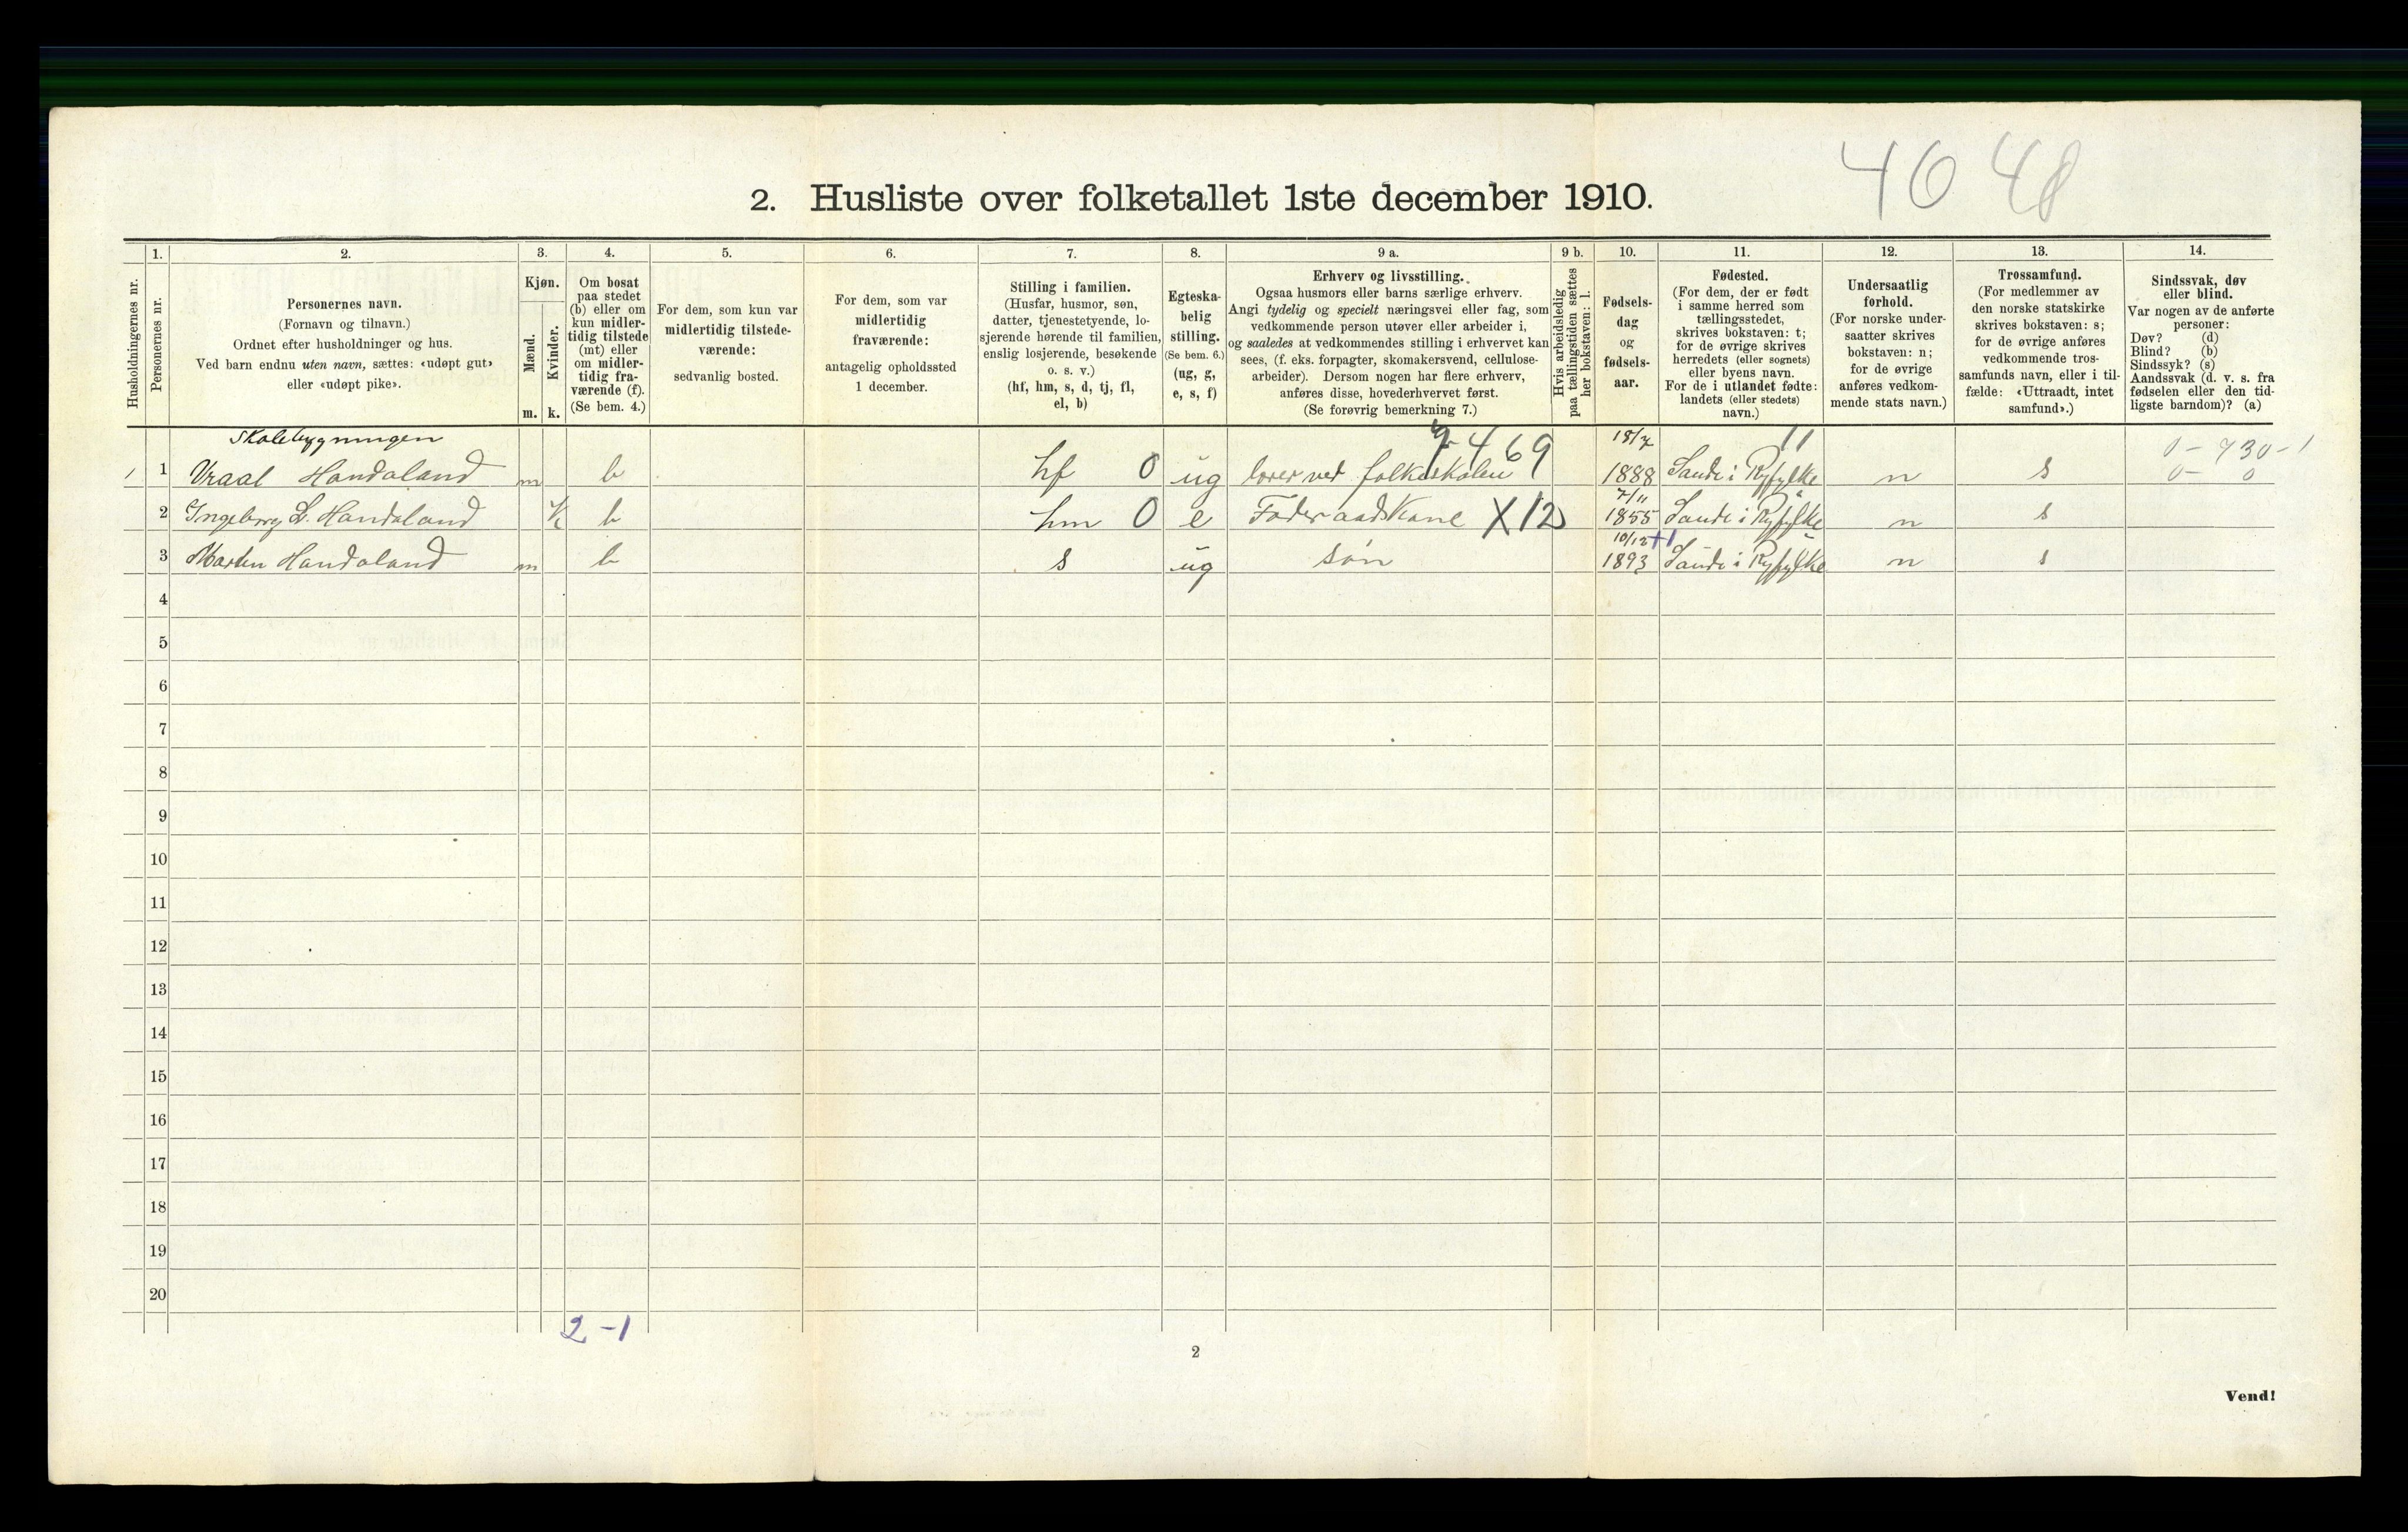 40 48
2. Husliste over folketallet 1ste december 1910.
Husholdningernes nr.
1.
Personernes nr.
2.
Personernes navn.
(Fornavn og tilnavn.)
Ordnet efter husholdninger og hus.
Ved barn endnu uten navn, sættes: «udøpt gut»
eller «udøpt pike».
3.
Kjøn.
Mænd.
Kvinder.
m. k.
4.
Om bosat
paa stedet
(b) eller om
kun midler-
tidig tilstede
(mt) eller
om midler-
tidig fra-
værende (f).
(Se bem. 4.)
5.
For dem, som kun var
midlertidig tilstede-
værende:
sedvanlig bosted.
6.
For dem, som var
midlertidig
fraværende:
antagelig opholdssted
1 december.
7.
Stilling i familien.
(Husfar, husmor, søn,
datter, tjenestetyende, lo-
sjerende hørende til familien,
enslig losjerende, besøkende
o. s. v.)
(hf, hm, s, d, tj, fl,
el, b)
8.
Egteska-
belig
stilling.
(Se bem. 6.)
(ug, g,
e, s, f)
9 a.
Erhverv og livsstilling.
Ogsaa husmors eller barns særlige erhverv.
Angi tydelig og specielt næringsvei eller fag, som
vedkommende person utøver eller arbeider i,
og saaledes at vedkommendes stilling i erhvervet kan
sees, (f. eks. forpagter, skomakersvend, cellulose-
arbeider). Dersom nogen har flere erhverv,
anføres disse, hovederhvervet først.
(Se forøvrig bemerkning 7.)
9 b.
Hvis arbeidsledig
paa tællingstiden sættes
her bokstaven: l.
10.
Fødsels-
dag
og
fødsels-
aar.
11.
Fødested.
(For dem, der er født
i samme herred som
tællingsstedet,
skrives bokstaven: t;
for de øvrige skrives
herredets (eller sognets)
eller byens navn.
For de i utlandet fødte:
landets (eller stedets)
navn.)
12.
Undersaatlig
forhold.
(For norske under-
saatter skrives
bokstaven: n;
for de øvrige
anføres vedkom-
mende stats navn.)
13.
Trossamfund.
(For medlemmer av
den norske statskirke
skrives bokstaven: s;
for de øvrige anføres
vedkommende tros-
samfunds navn, eller i til-
fælde: «Uttraadt, intet
samfund».)
14.
Sindssvak, døv
eller blind.
Var nogen av de anførte
personer:
Døv? (d)
Blind? (b)
Sindssyk? (s)
Aandssvak (d. v. s. fra
fødselen eller den tid-
ligste barndom)? (a)
Skolebygningen 469 18/7 11 0-730-1
1 1 Vraal Handeland m b hf 0 ug lærer ved folkeskolen 1888 Sande i Ryfylke n s 0- 0
7/11
2 Ingeborg L. Handeland k b hm 0 e Føderaadskone X12 1855 Sande i Ryfylke n s
10/12 +1
3 Marten Handeland m b s ug søn 1893 Sande i Ryfylke n s
4
5
6
7
8
9
10
11
12
13
14
15
16
17
18
19
20
2-1
2
Vend!